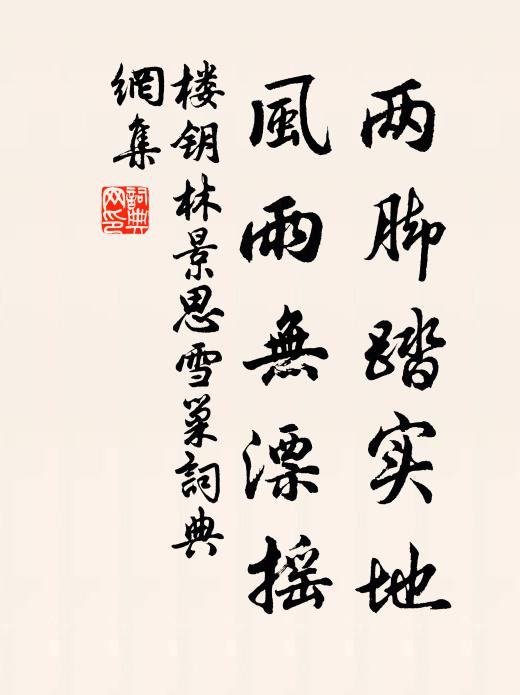 两脚踏实地
風雨無漂摇
楼钥林景思雪巢詞典
網集
詞典网印